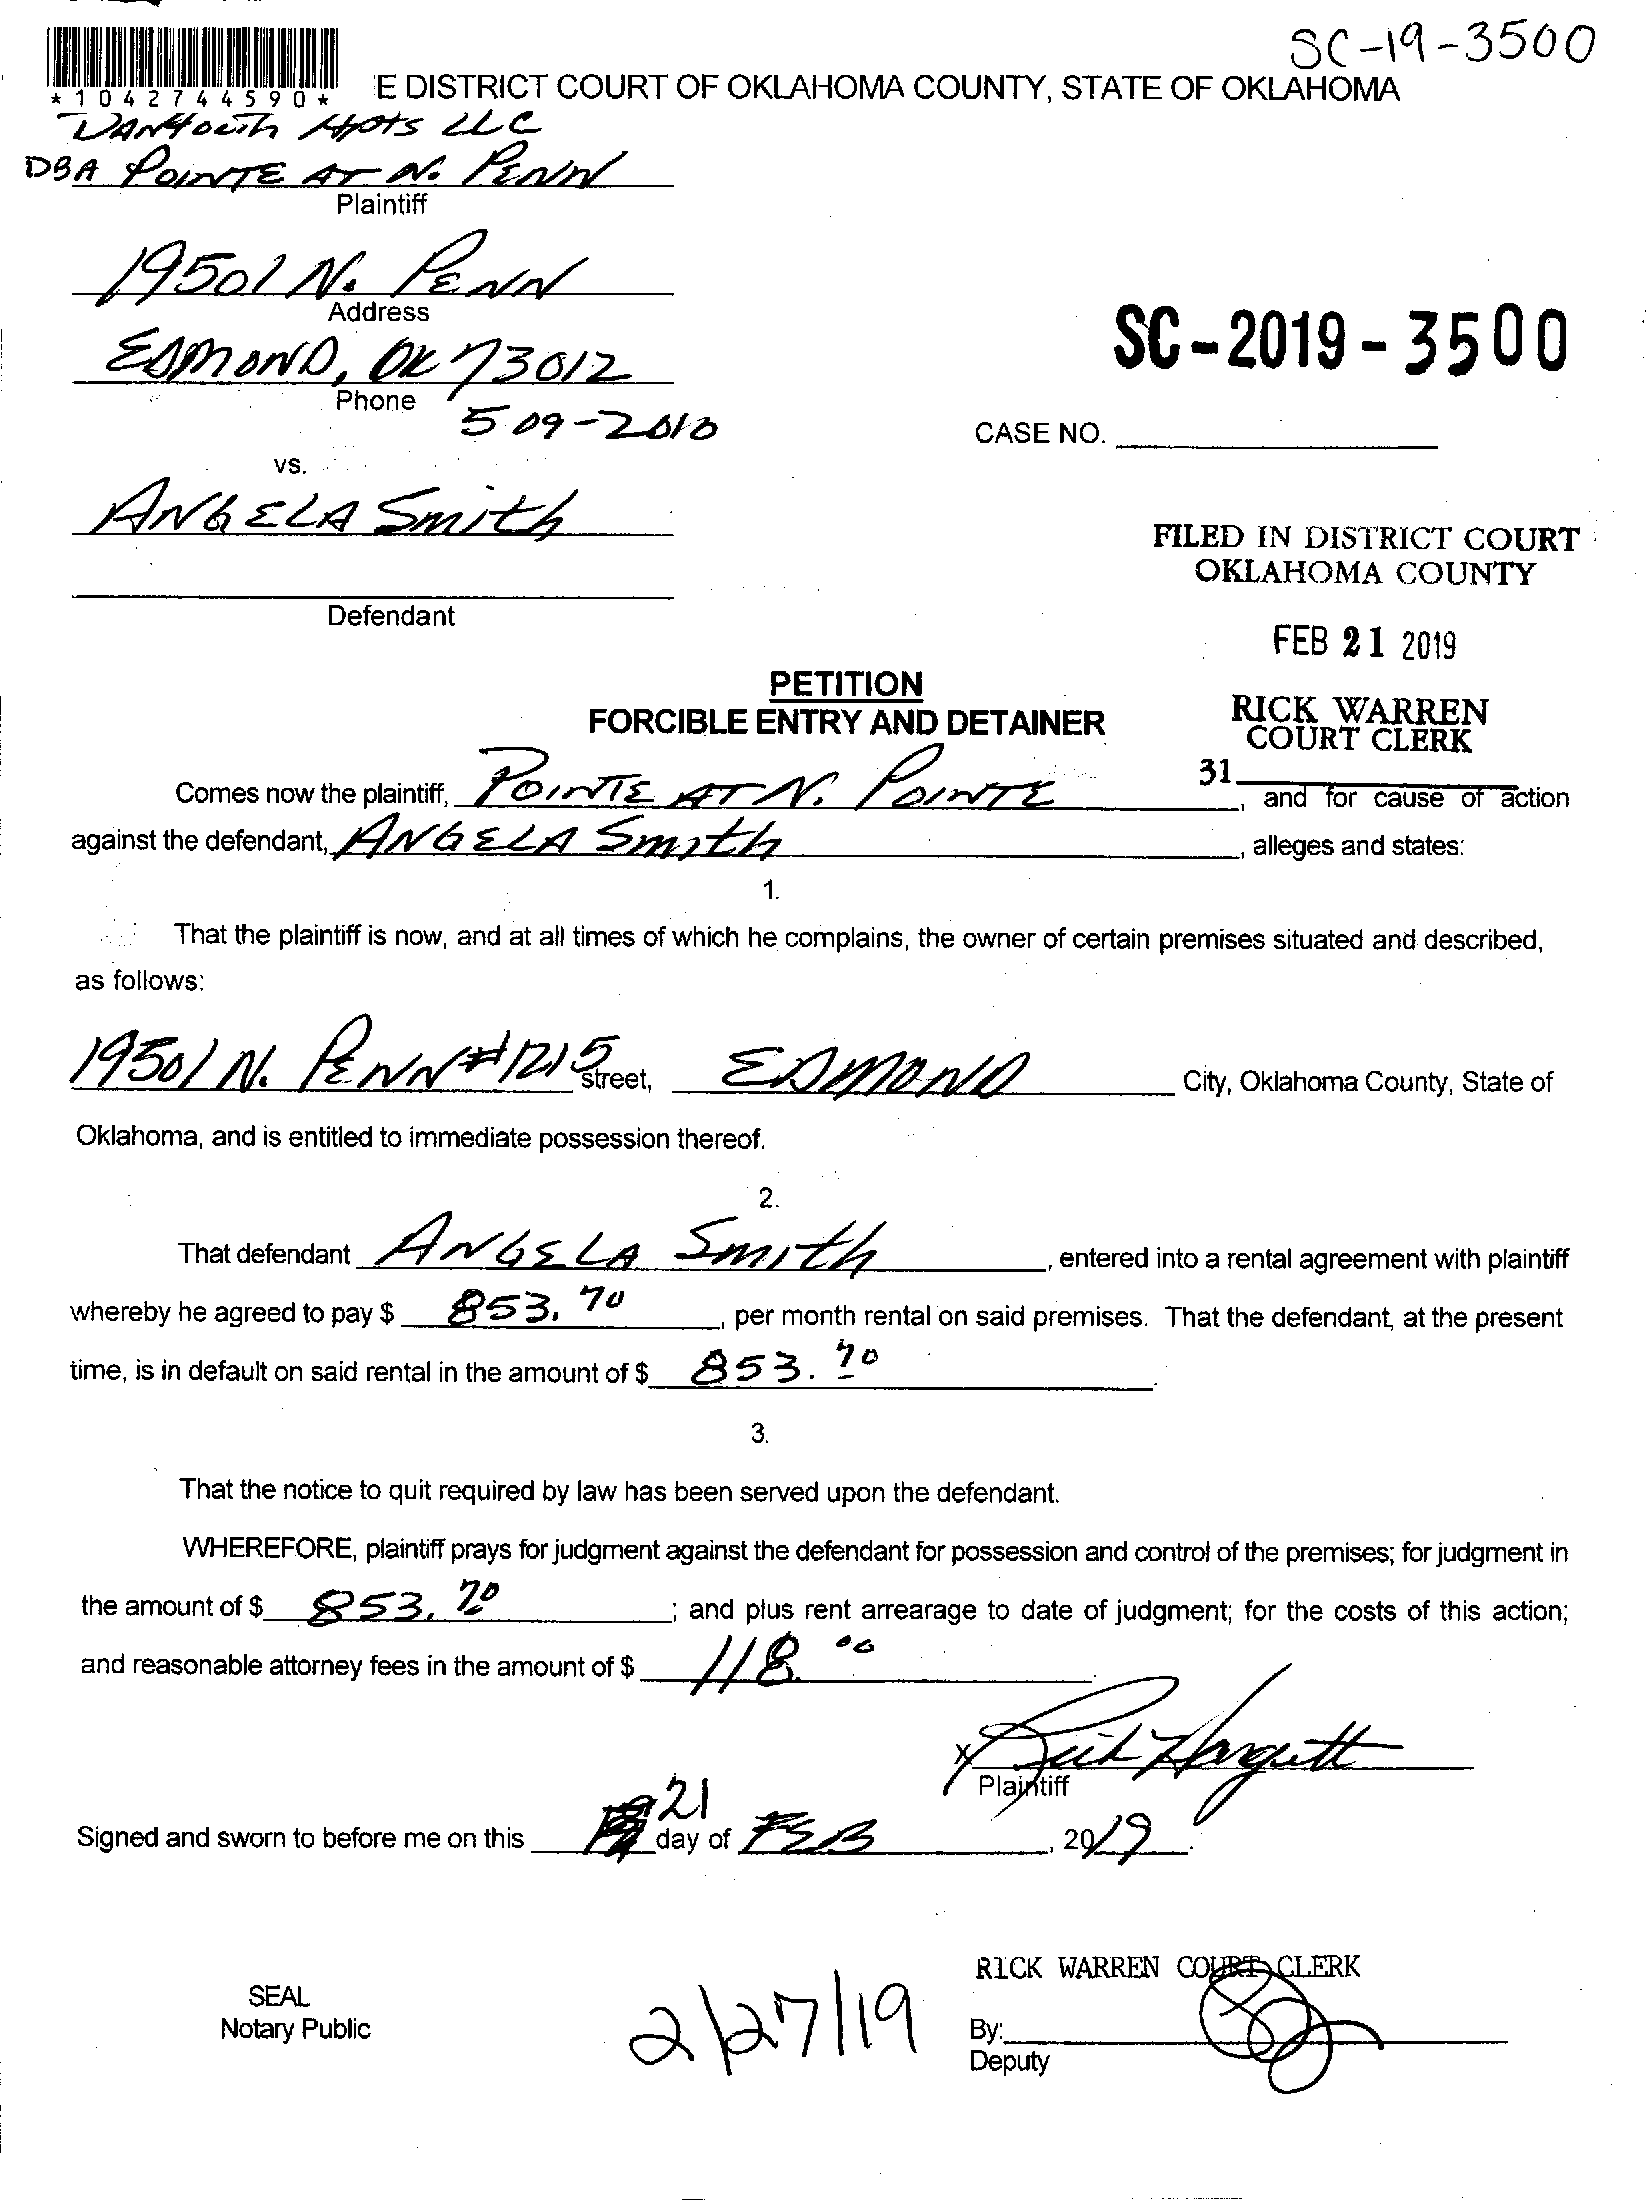 SC-19-3500
*1042744590*
E DISTRICT COURT OF OKLAHOMA COUNTY, STATE OF OKLAHOMA
Apts LLC
DBA POINTE AT N. PENN
Plaintiff
19501 N. PENN
Address
EDMOND, OK 73012
Phone
509-2010
SC-2019-3500
CASE NO.
vs.
ANGELA Smith
Defendant
FILED IN DISTRICT COURT
OKLAHOMA COUNTY
FEB 21 2019
RICK WARREN
COURT CLERK
31
PETITION
FORCIBLE ENTRY AND DETAINER
Comes now the plaintiff, POINTE AT N. POINTE, and for cause of action
against the defendant, ANGELA Smith, alleges and states:
1.
That the plaintiff is now, and at all times of which he complains, the owner of certain premises situated and described,
as follows:
19501 N. PENN #1215 street, EDMOND City, Oklahoma County, State of
Oklahoma, and is entitled to immediate possession thereof.
2.
That defendant ANGELA Smith, entered into a rental agreement with plaintiff
whereby he agreed to pay $ 853.70, per month rental on said premises. That the defendant, at the present
time, is in default on said rental in the amount of $ 853.70.
3.
That the notice to quit required by law has been served upon the defendant.
WHEREFORE, plaintiff prays for judgment against the defendant for possession and control of the premises; for judgment in
the amount of $ 853.70; and plus rent arrearage to date of judgment; for the costs of this action;
and reasonable attorney fees in the amount of $ 118.00
x
Plaintiff
Signed and sworn to before me on this 21 day of FEB, 2019.
RICK WARREN COURT CLERK
SEAL
Notary Public
2/27/19
By:
Deputy